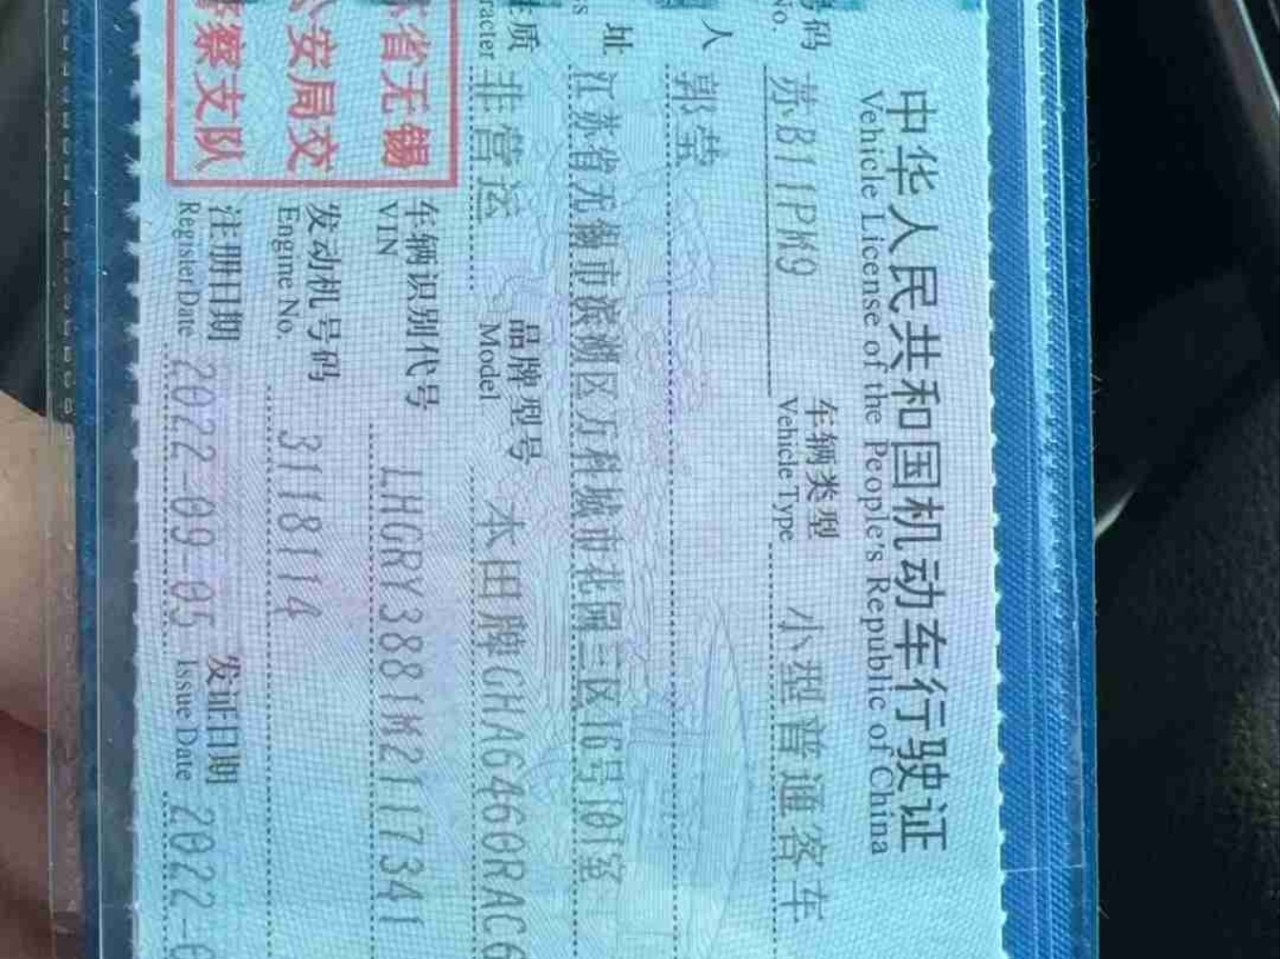 中华人民共和国机动车行驶证
Vehicle License of the People's Republic of China
号码 苏B11PM9 车辆类型 小型普通客车
No. Vehicle Type
人 郭莹
址 江苏省无锡市滨湖区万科城市花园三区16号101室
质 非营运 品牌型号 本田牌GHA6460RAC6
racter Model
省无锡
安局交
察支队
车辆识别代号 LHGRY3881M2117341
VIN
发动机号码 3118114
Engine No.
注册日期 2022-09-05 发证日期 2022-0
Register Date Issue Date